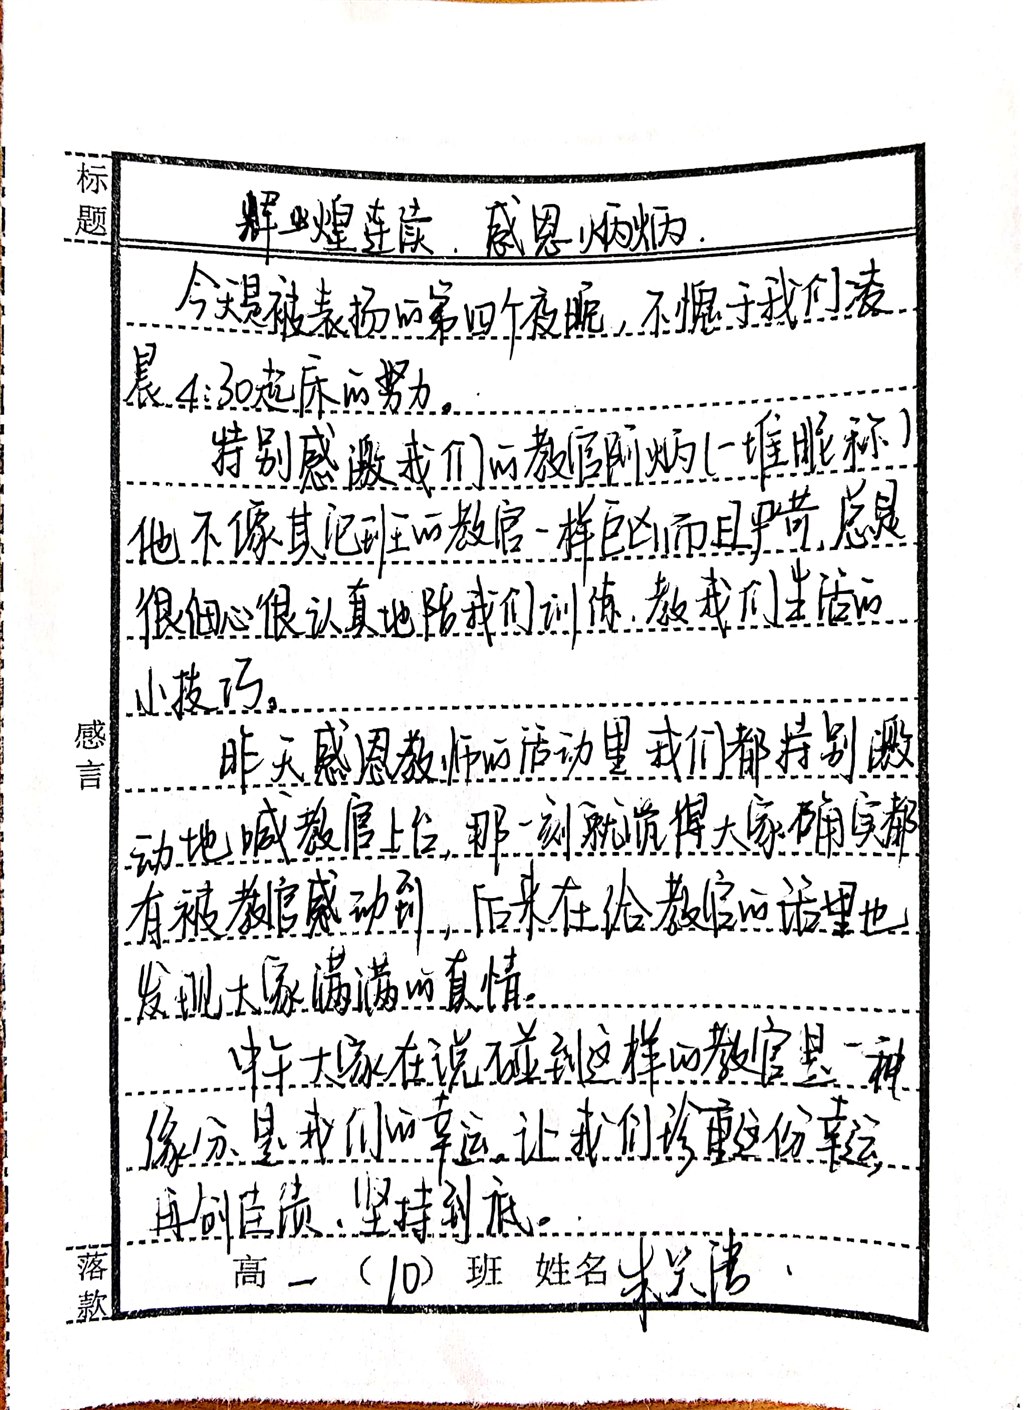 标题
辉煌连续、感恩炳炳.
今天是被表扬的第四个夜晚，不愧于我们凌
晨4:30起床的努力。
特别感激我们的教官阿炳(一堆昵称)
他不像其它班的教官一样巨凶而且严苛，总是
很细心很认真地陪我们训练，教我们生活的
小技巧。
感言
昨天感恩教师的活动里我们都特别激
动地喊教官上台，那一刻就觉得大家确实都
有被教官感动到，后来在给教官的话里也
发现大家满满的真情。
中午大家在说碰到这样的教官是一种
缘分、是我们的幸运。让我们珍重这份幸运，
再创佳绩，坚持到底。
落款
高一（10）班 姓名朱